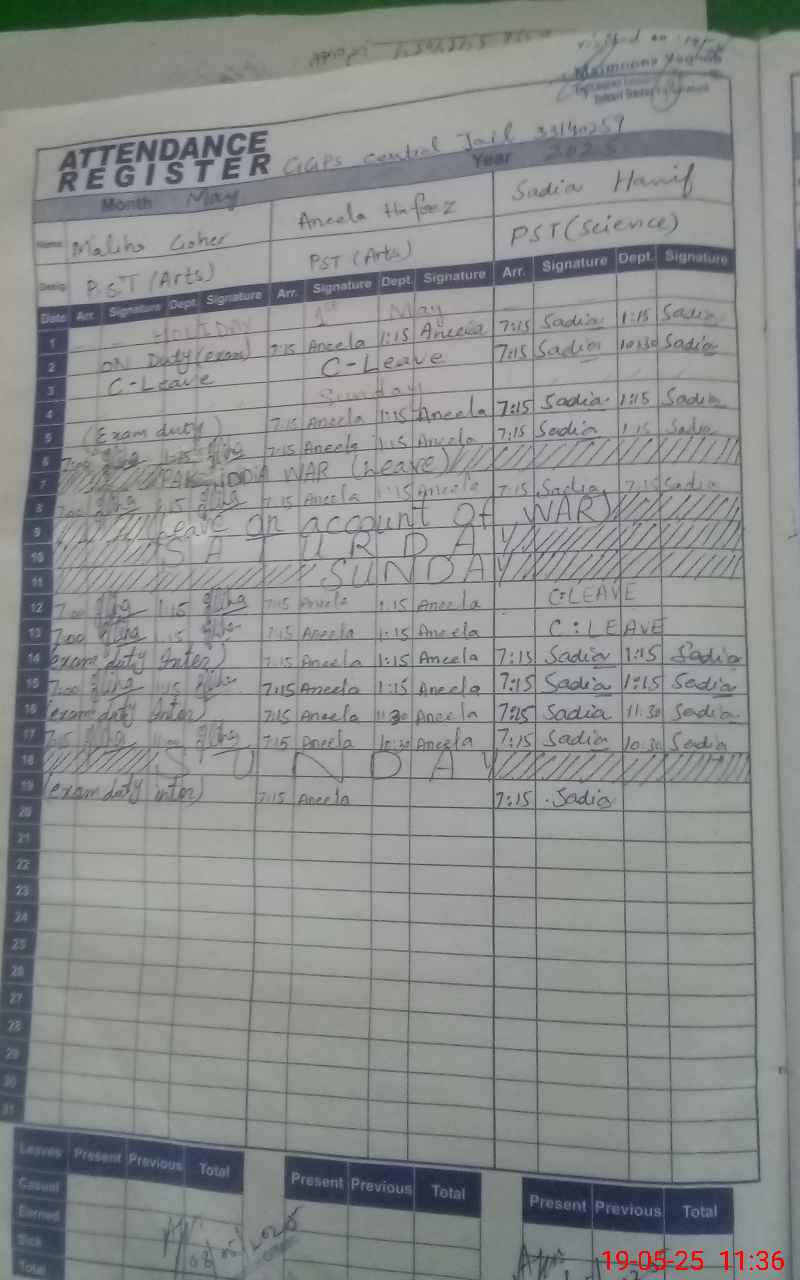 ATTENDANCE
REGISTER GGPS central Jail 33140259
Month May Year 2025
Name Maliha Goher Aneela Hafeez Sadia Hanif
Desig. P.S.T (Arts) PST (Arts) PST (Science)
Date Arr. Signature Dept. Signature Arr. Signature Dept. Signature Arr. Signature Dept. Signature
1 HOLIDAY 1st May
2 ON Duty (exam) 7:15 Aneela 1:15 Aneela 7:15 Sadia 1:15 Sadia
3 C-Leave C-Leave 7:15 Sadia 10:30 Sadia
4 Sunday
5 (Exam duty) 7:15 Aneela 1:15 Aneela 7:15 Sadia 1:15 Sadia
6 7:00 1:15 7:15 Aneela 1:15 Aneela 7:15 Sadia 1:15 Sadia
7 PAK INDIA WAR (Leave)
8 7:00 1:15 7:15 Aneela 1:15 Aneela 7:15 Sadia 7:15 Sadia
9 Leave on account of WAR)
10 SATURDAY
11 SUNDAY
12 7:00 1:15 7:15 Aneela 1:15 Aneela C:LEAVE
13 7:00 1:15 7:15 Aneela 1:15 Aneela C:LEAVE
14 (exam duty Inter) 7:15 Aneela 1:15 Aneela 7:15 Sadia 1:15 Sadia
15 7:00 1:15 7:15 Aneela 1:15 Aneela 7:15 Sadia 1:15 Sadia
16 (exam duty Inter) 7:15 Aneela 11:30 Aneela 7:25 Sadia 11:30 Sadia
17 7:15 11:00 7:15 Aneela 10:30 Aneela 7:15 Sadia 10:30 Sadia
18 SUNDAY
19 (exam duty inter) 7:15 Aneela 7:15 Sadia
20
21
22
23
24
25
26
27
28
29
30
31
Leaves Present Previous Total Present Previous Total Present Previous Total
Casual
Earned
Sick
Total
19-05-25 11:36